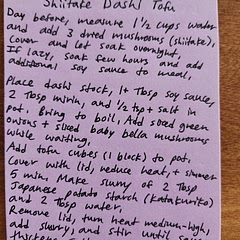 Shiitake Dashi Tofu
Day before, measure 1 1/2 cups water
and add 3 dried mushrooms (shiitake),
Cover and let soak overnight,
If lazy, soak few hours and add
additional soy sauce to meal,
Place dashi stock, 1+ Tbsp soy sauce,
2 Tbsp mirin, and 1/2 tsp+ salt in
pot, Bring to boil, Add sliced green
onions + sliced baby bella mushrooms
while waiting,
Add tofu cubes (1 block) to pot,
Cover with lid, reduce heat, + simmer
5 min. Make slurry of 2 Tbsp
Japanese potato starch (katakuriko)
and 2 Tbsp water,
Remove lid, turn heat medium-high,
add slurry, and stir until